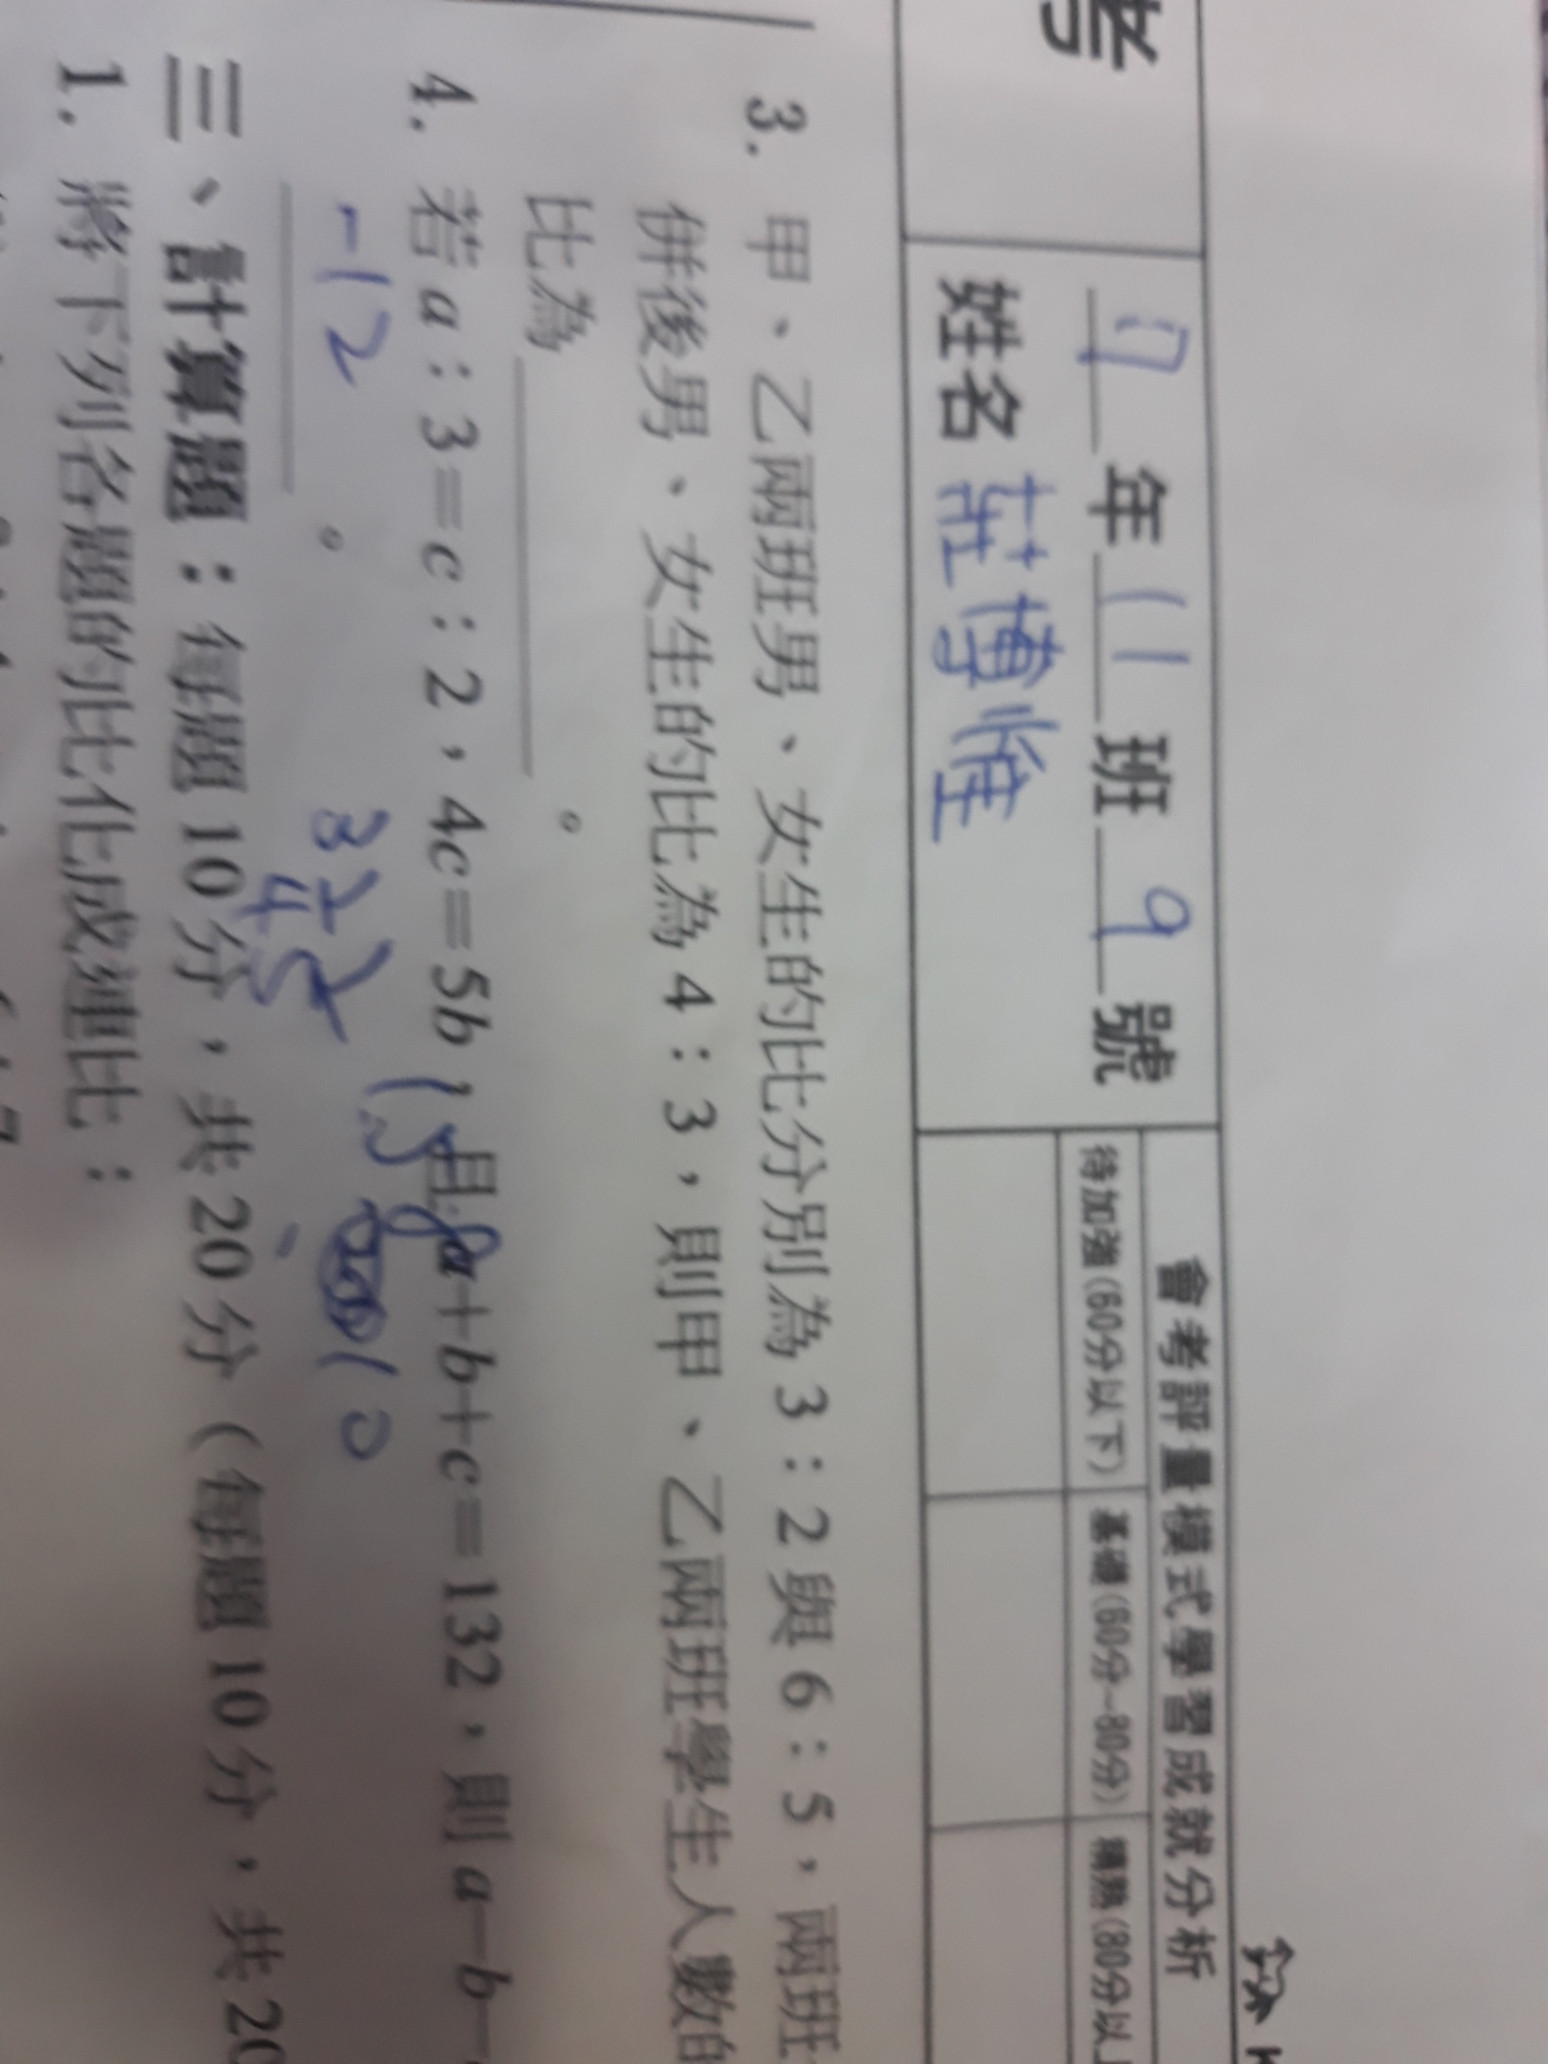 考
7年11班9號
姓名 莊博惟
會考評量模式學習成就分析
待加強(60分以下) 基礎(60分~80分) 精熟(80分以上
3. 甲、乙兩班男、女生的比分別為3：2與6：5，兩班
併後男、女生的比為4：3，則甲、乙兩班學生人數的
比為＿＿＿＿。
4. 若a：3=c：2，4c=5b，且a+b+c=132，則a-b-
-12。
3 2
4 5
15 8 10
三、計算題：每題10分，共20分（每題10分，共20
1. 將下列各題的比化成連比：